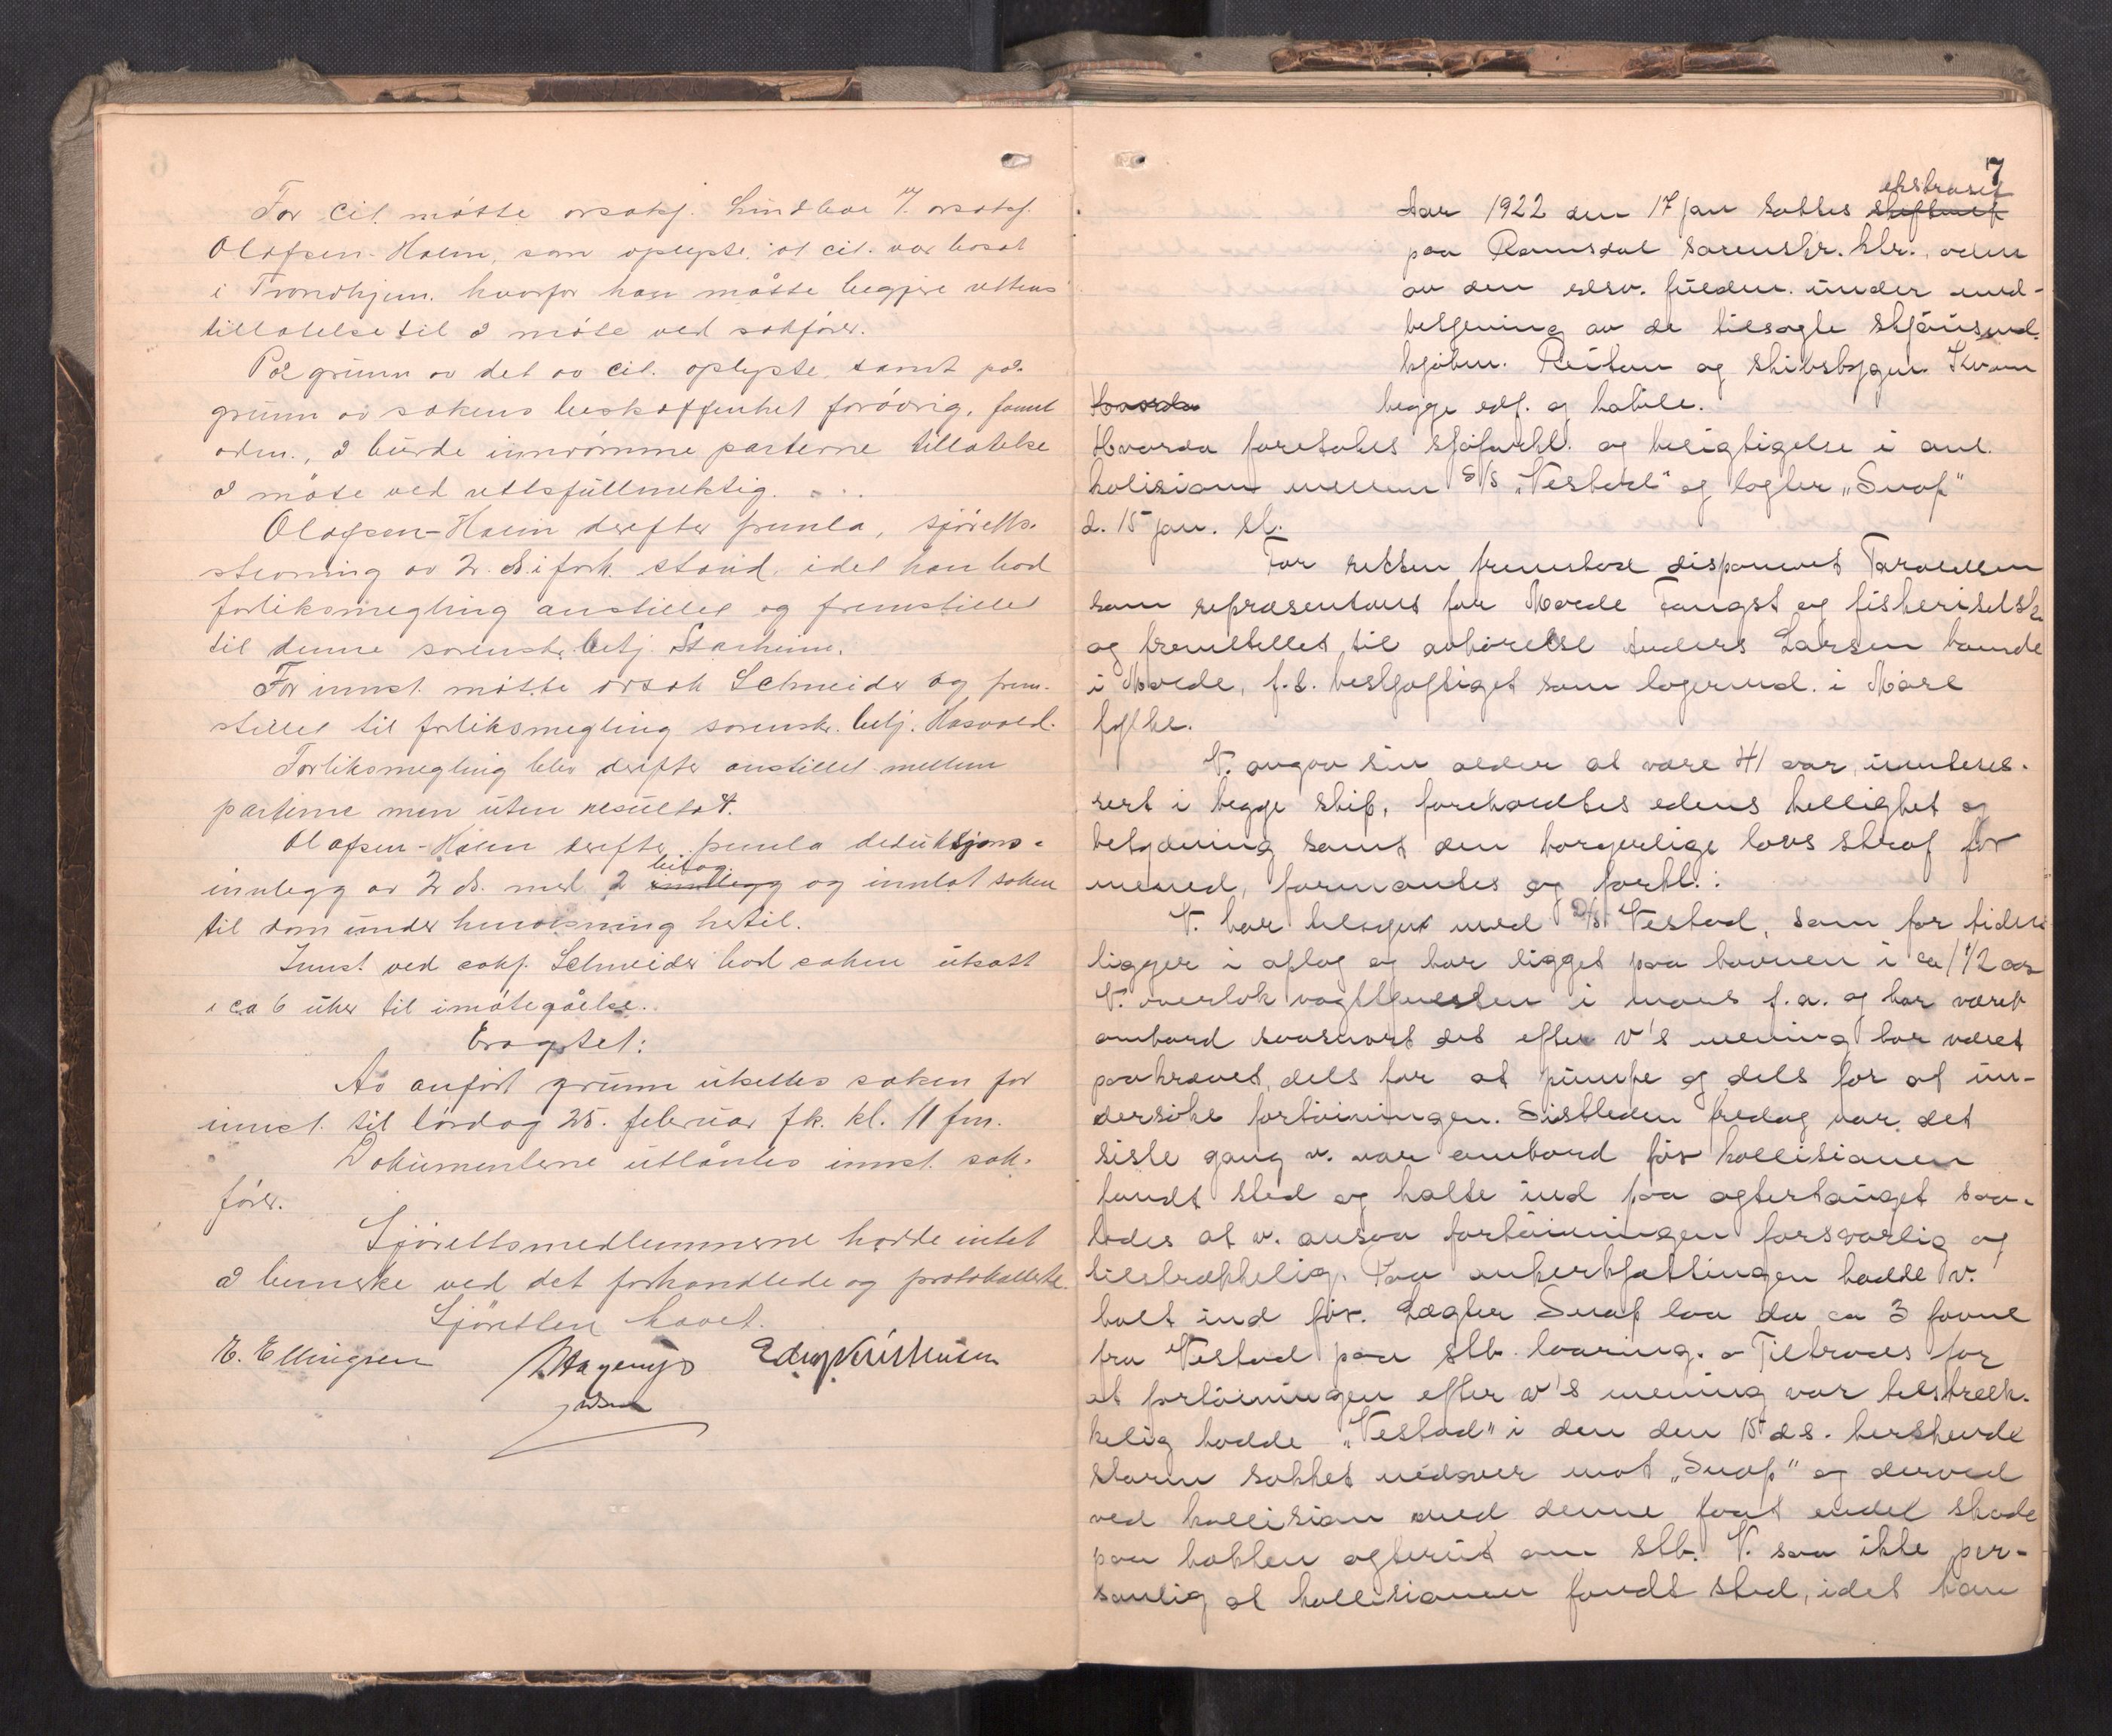 For cit. møtte orsakf. Lindboe v. orsakf.
Olafsen-Holm, som oplyste, at cit. var bosat
i Trondhjem, hvorfor han måtte begjere rettens
tillatelse til å møte ved sakfører.
På grunn av det av cit. oplyste, samt på
grunn av sakens beskaffenhet forøvrig, fannt
adm., å burde innrømme parterne tillatelse
å møte ved rettsfullmektig.
Olafsen-Holm derefter fremla, sjøretts-
stevning av 2. ds. i fork. stand, idet han bad
forliksmegling anstillet og fremstillet
til denne sorenskr. betj. Starheim.
For innst. møtte orsak Schneider og frem-
stillet til forliksmegling sorenskr. betj. Hasvold.
Forliksmegling blev derefter anstillet mellem
partene men uten resultat.
Olafsen-Holm derefter fremla deduktsjons-
bilag
innlegg av 2 ds. med 2 innlegg og innlot saken
til dom under henvisning hertil.
Innst. ved sakf. Schneider bad saken utsatt
i ca 6 uker til imøtegåelse.
Eragtet:
Av anført grunn utsettes saken for
innst. til lørdag 25. februar fk. kl. 11 fm.
Dokumentene utlåntes innst. sak-
fører.
Sjørettsmedlemmerne hadde intet
å bemerke ved det forhandlede og protokollerte.
Sjøretten hævet.
E. Ellingsen
7
ekstraret
Aar 1922 den 17 jan sattes skifteret
paa Romsdal sorenskr. ktr., adm
av den edsv. fuldm. under med-
betjening av de tilsagte skjønsmd.
kjøbm. Reitan og skibsbygger Kvam
begge edf. og habile.
Hvorda
Hvorda foretokes sjøforkl. og besigtigelse i anl.
kolision mellem S/S "Vestad" og lægter "Snap"
d. 15 jan. sl.
For retten fremstod disponent Taraldsen
som repræsentant for Molde Fangst og fiskeriselsk.
og fremstillet til avhørelse Anders Larsen boende
i Molde, f.t. beskjæftiget som lagermd. i Møre
fylke.
V. angav sin alder at være 41 aar, uinteres-
sert i begge skib, foreholdtes edens hellighet og
betydning samt den borgerlige lovs straf for
mened, formantes og forkl.:
V. har tilsynet med D/S Vestad, som for tiden
ligger i oplag og har ligget paa havnen i ca 1 1/2 aar
V. overtok vagttjenesten i mars f.a. og har været
ombord saasnart det efter v's mening har været
paakrævet, dels for at pumpe og dels for at un-
dersøke fortøiningen. Sistleden fredag var det
siste gang v. var ombord før kollisionen
fandt sted og halte ind paa agtertauget saa-
ledes at v. ansaa fortøiningen forsvarlig og
tilstrækkelig. Paa ankerkjættingen hadde v.
halt ind før. Lægter Snap laa da ca 3 favne
fra Vestad paa stb. laaring. Tiltrods for
at fortøiningen efter v's mening var tilstræk-
kelig hadde "Vestad" i den den 15 ds. herskende
storm sakket nedover mot "Snap" og derved
ved kollision med denne faat endel skade
paa hækken agterut om stb. V. saa ikke per-
sonlig at kollisionen fandt sted, idet han